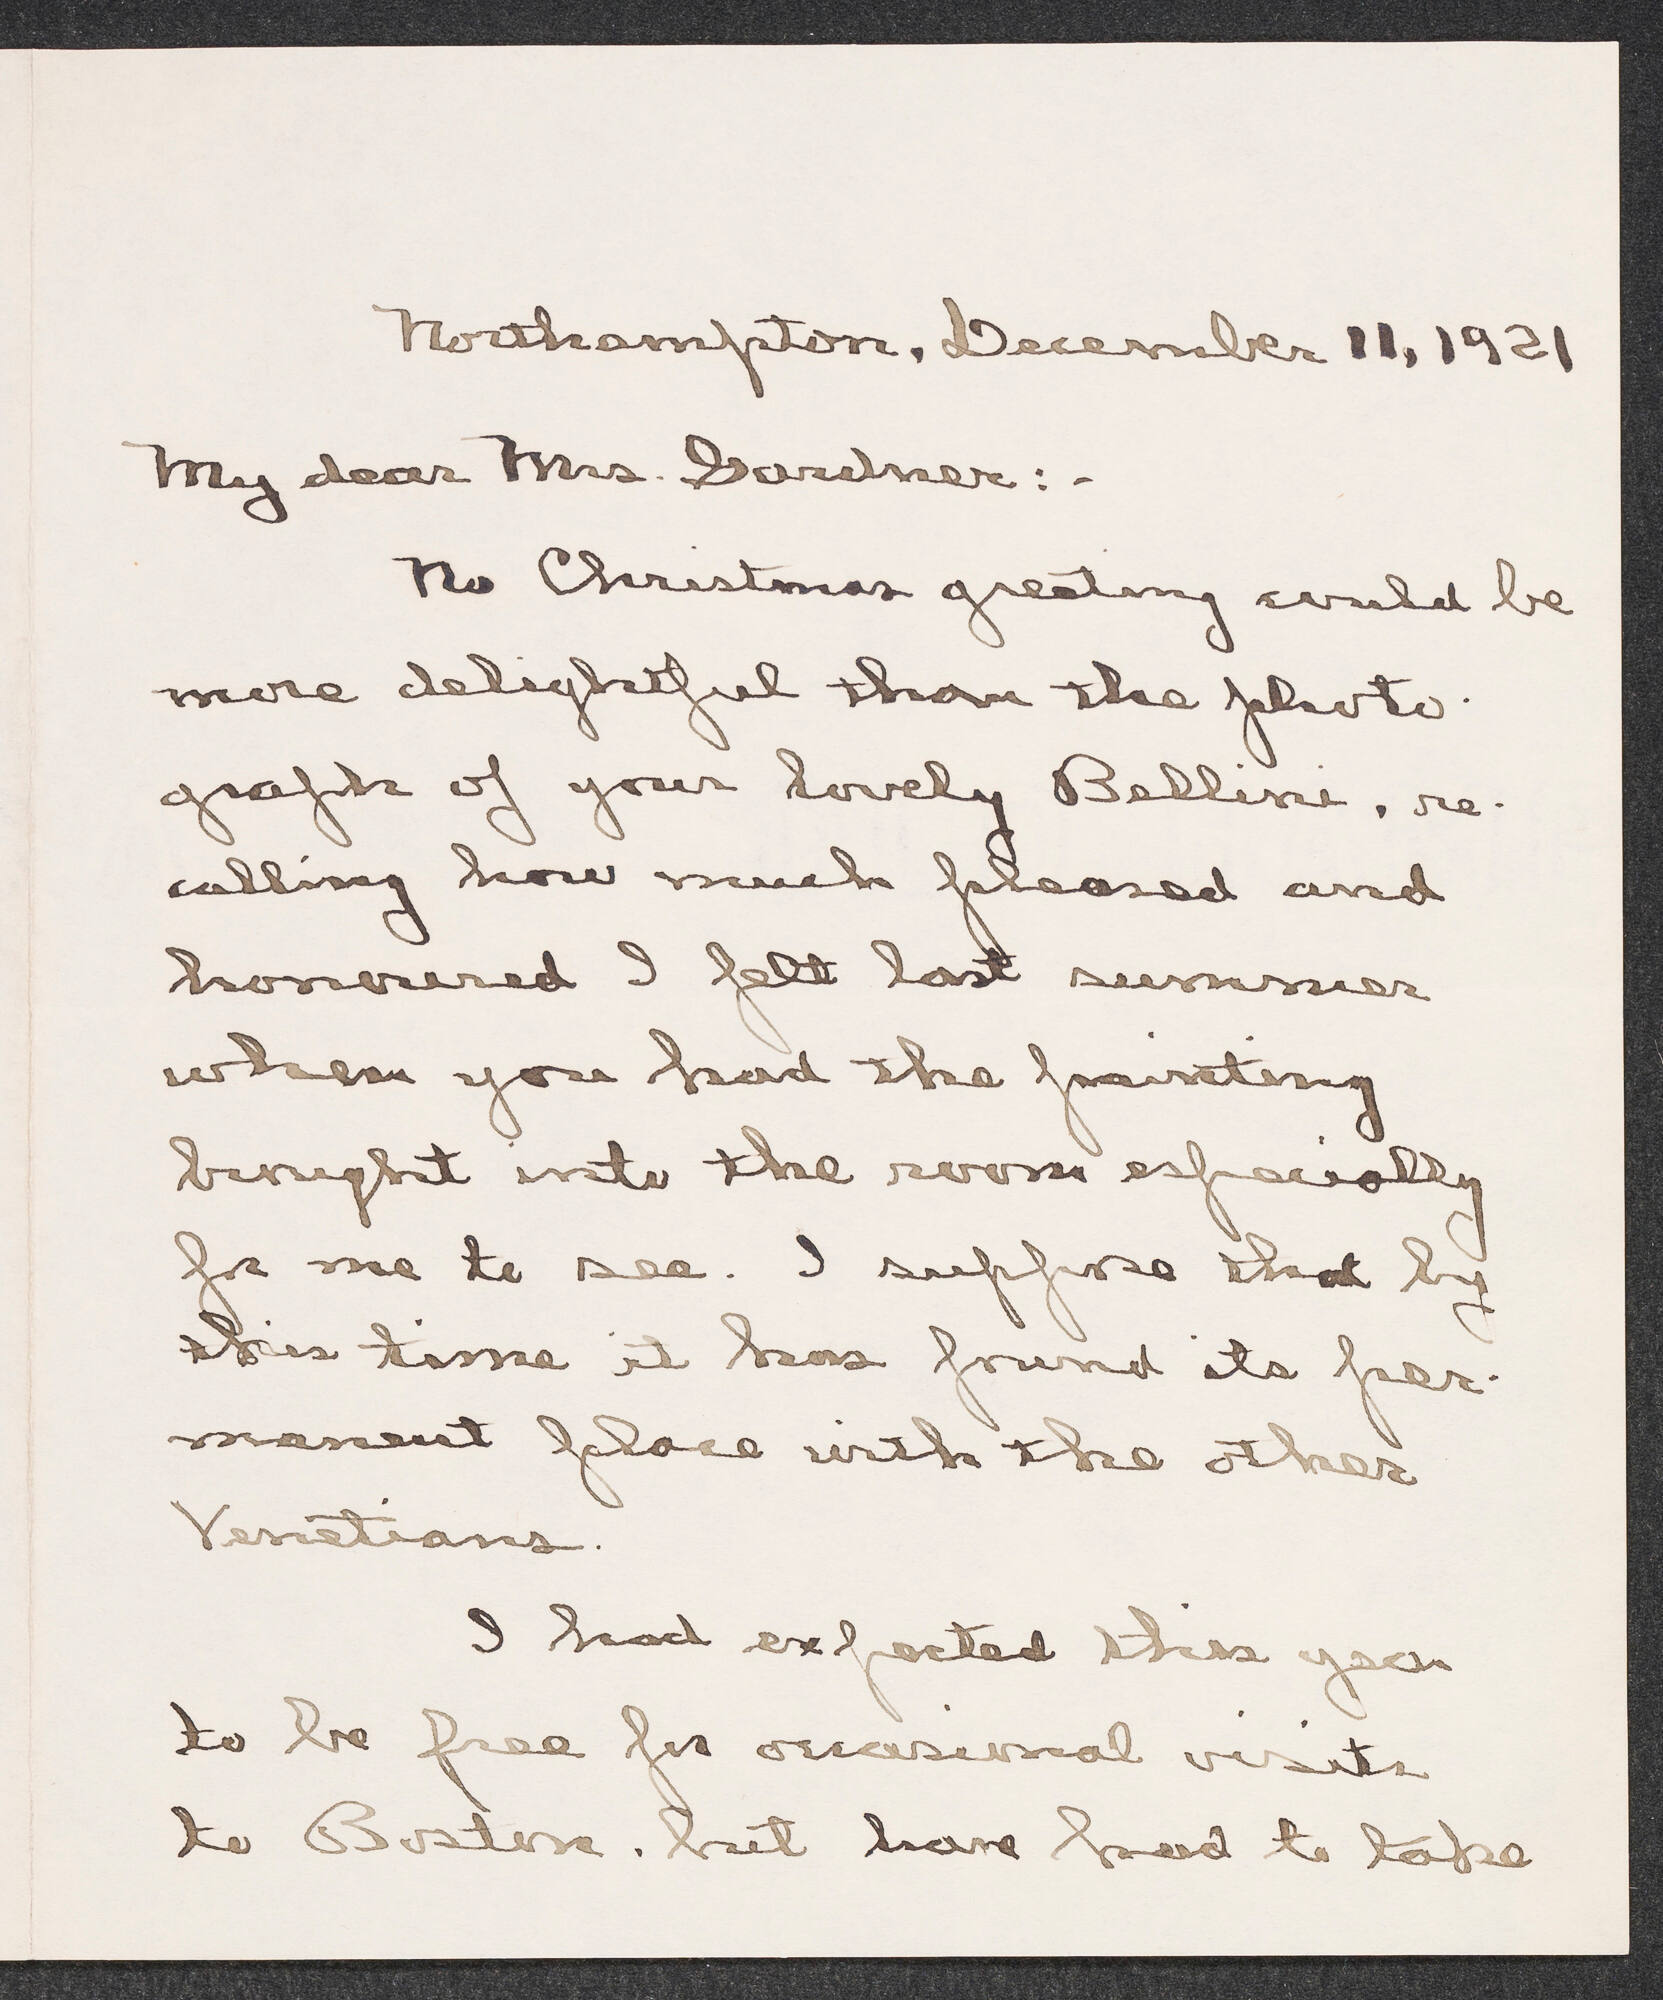 Northampton, December 11, 1921
My dear Mrs. Gardner:-
No Christmas greeting could be
more delightful than the photo-
graph of your lovely Bellini, re-
calling how much pleased and
honoured I felt last summer
when you had the painting
brought into the room especially
for me to see. I suppose that by
this time it has found its per-
manent place with the other
Venetians.
I had expected this year
to be free for occasional visits
to Boston, but have had to take